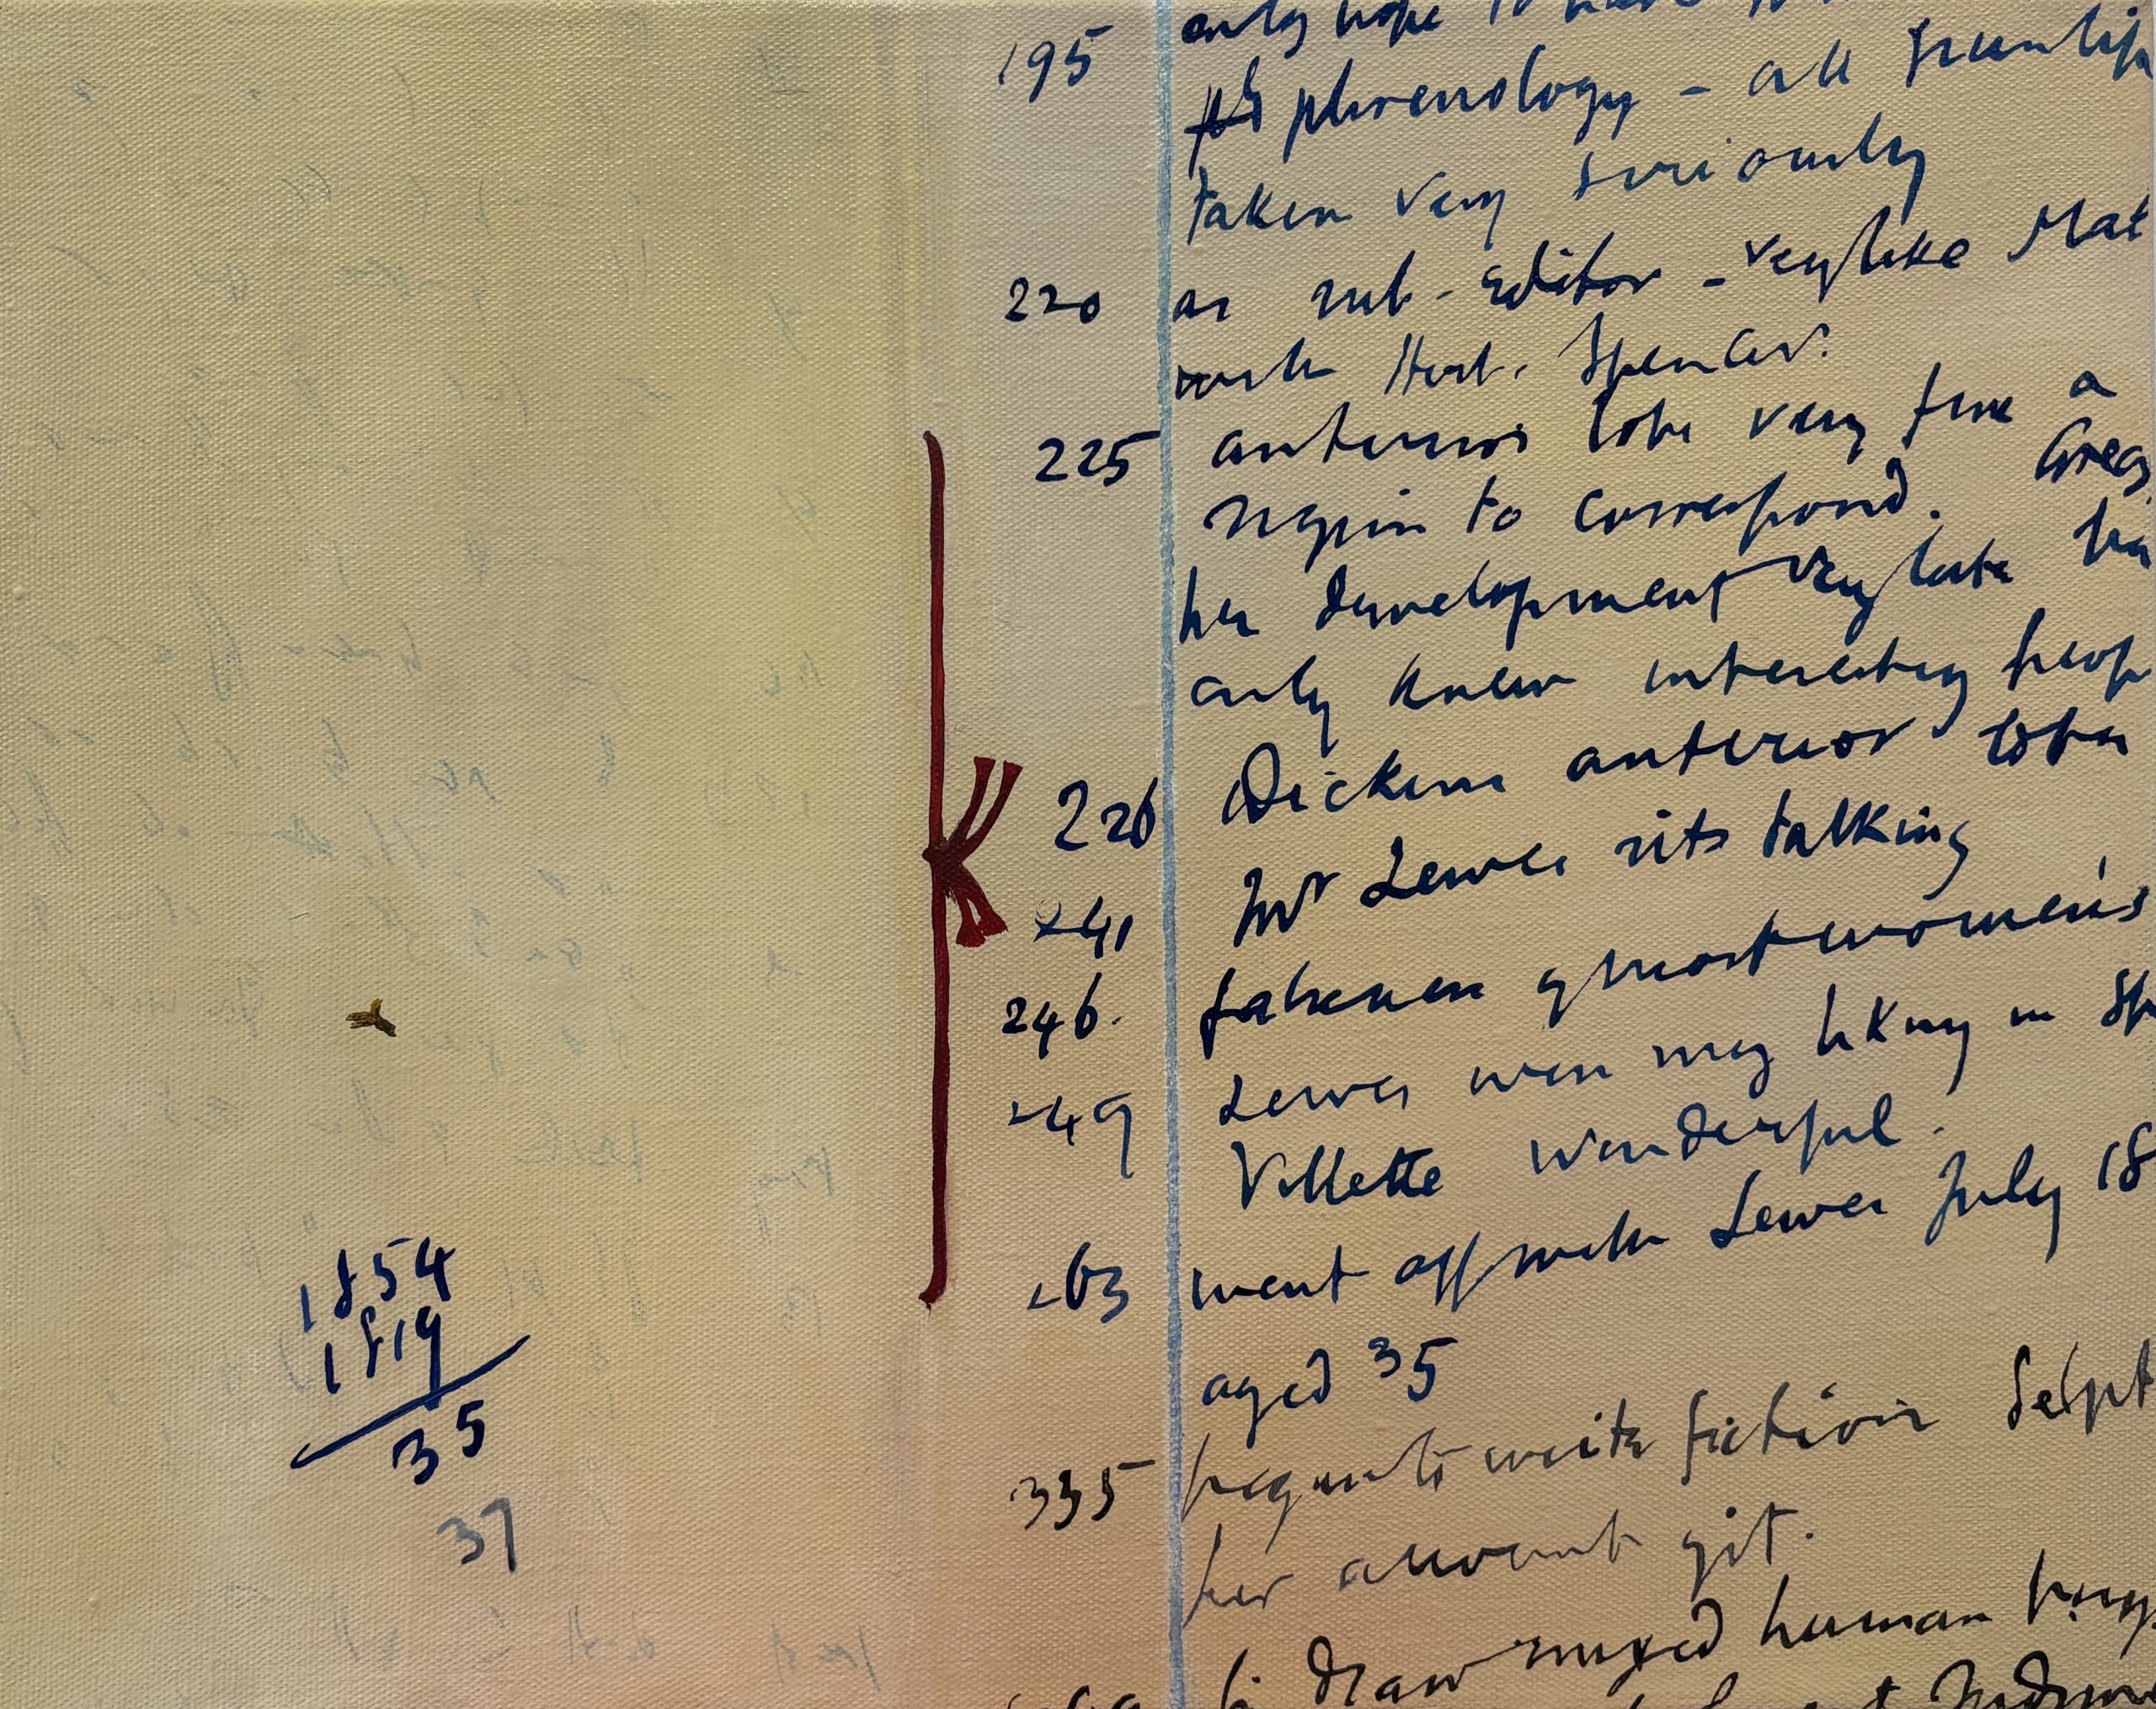 195 only hope to have
phrenology - all
taken very seriously
220 as sub-Editor - very like Mat
with Herb. Spencer.
225 anterior lobe very fine a
region to correspond. Greg
her development very late ha
only knew interesting peop
226 Dickens anterior lobes
241 Mr Lewes sits talking
246. most women's
249 Lewes won my liking in sp
Villette wonderful.
263 went off with Lewes July 18
aged 35
335 begins to write fiction Sept
her account git.
to draw mixed human
1854
1819
35
37